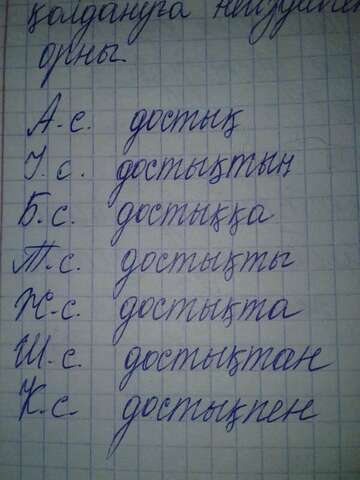 қолдануға негізделген
орны.
А.с. достық
І.с. достықтың
Б.с. достыққа
Т.с. достықты
Ж.с. достықта
Ш.с. достықтан
К.с. достықпен